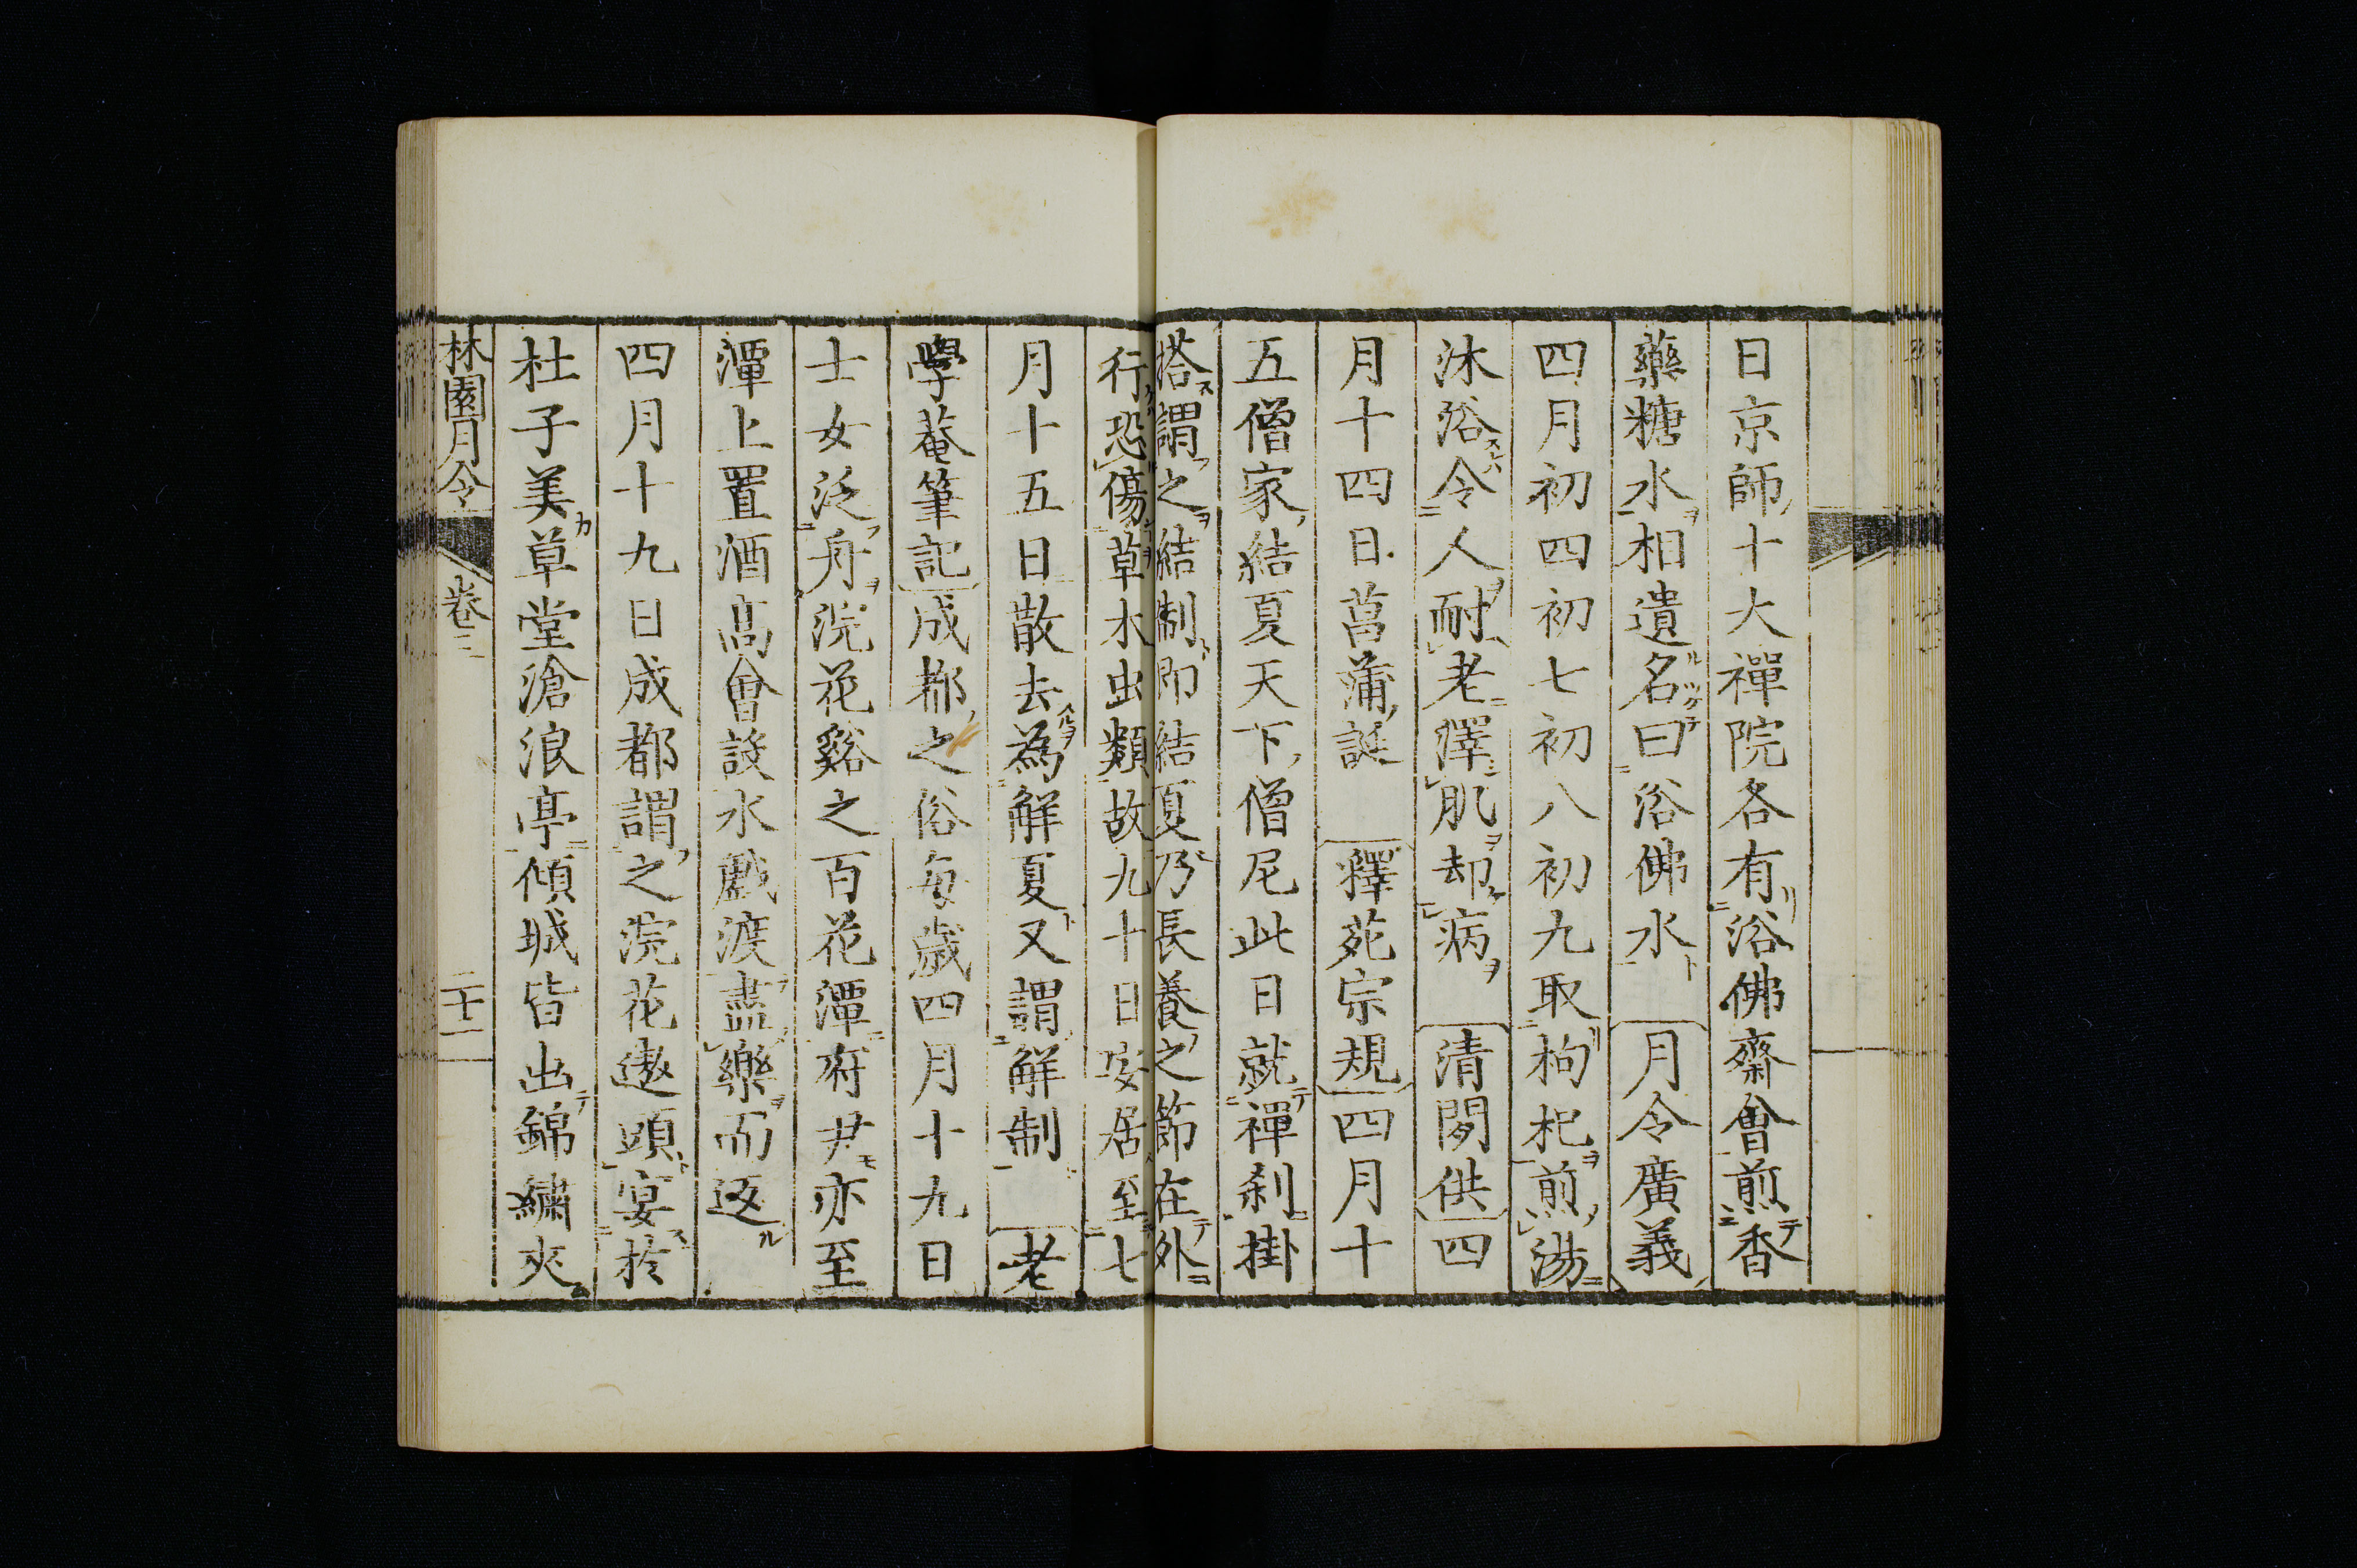 日京師十大禪院各有浴佛齋會煎香
藥糖水相遺名曰浴佛水 月令廣義
四月初四初七初八初九取枸杞煎湯
沐浴令人耐老澤肌却病 清閒供四
月十四日菖蒲誕 釋苑宗規四月十
五僧家結夏天下僧尼此日就禪刹掛
搭謂之結制即結夏乃長養之節在外
行恐傷草木虫類故九十日安居至七
月十五日散去為解夏又謂解制 老
學菴筆記成都之俗每歲四月十九日
士女泛舟浣花谿之百花潭府尹亦至
潭上置酒高會設水戲渡盡樂而返
四月十九日成都謂之浣花遨頭宴於
杜子美草堂滄浪亭傾城皆出錦繡夾
林園月令 卷三 二十一